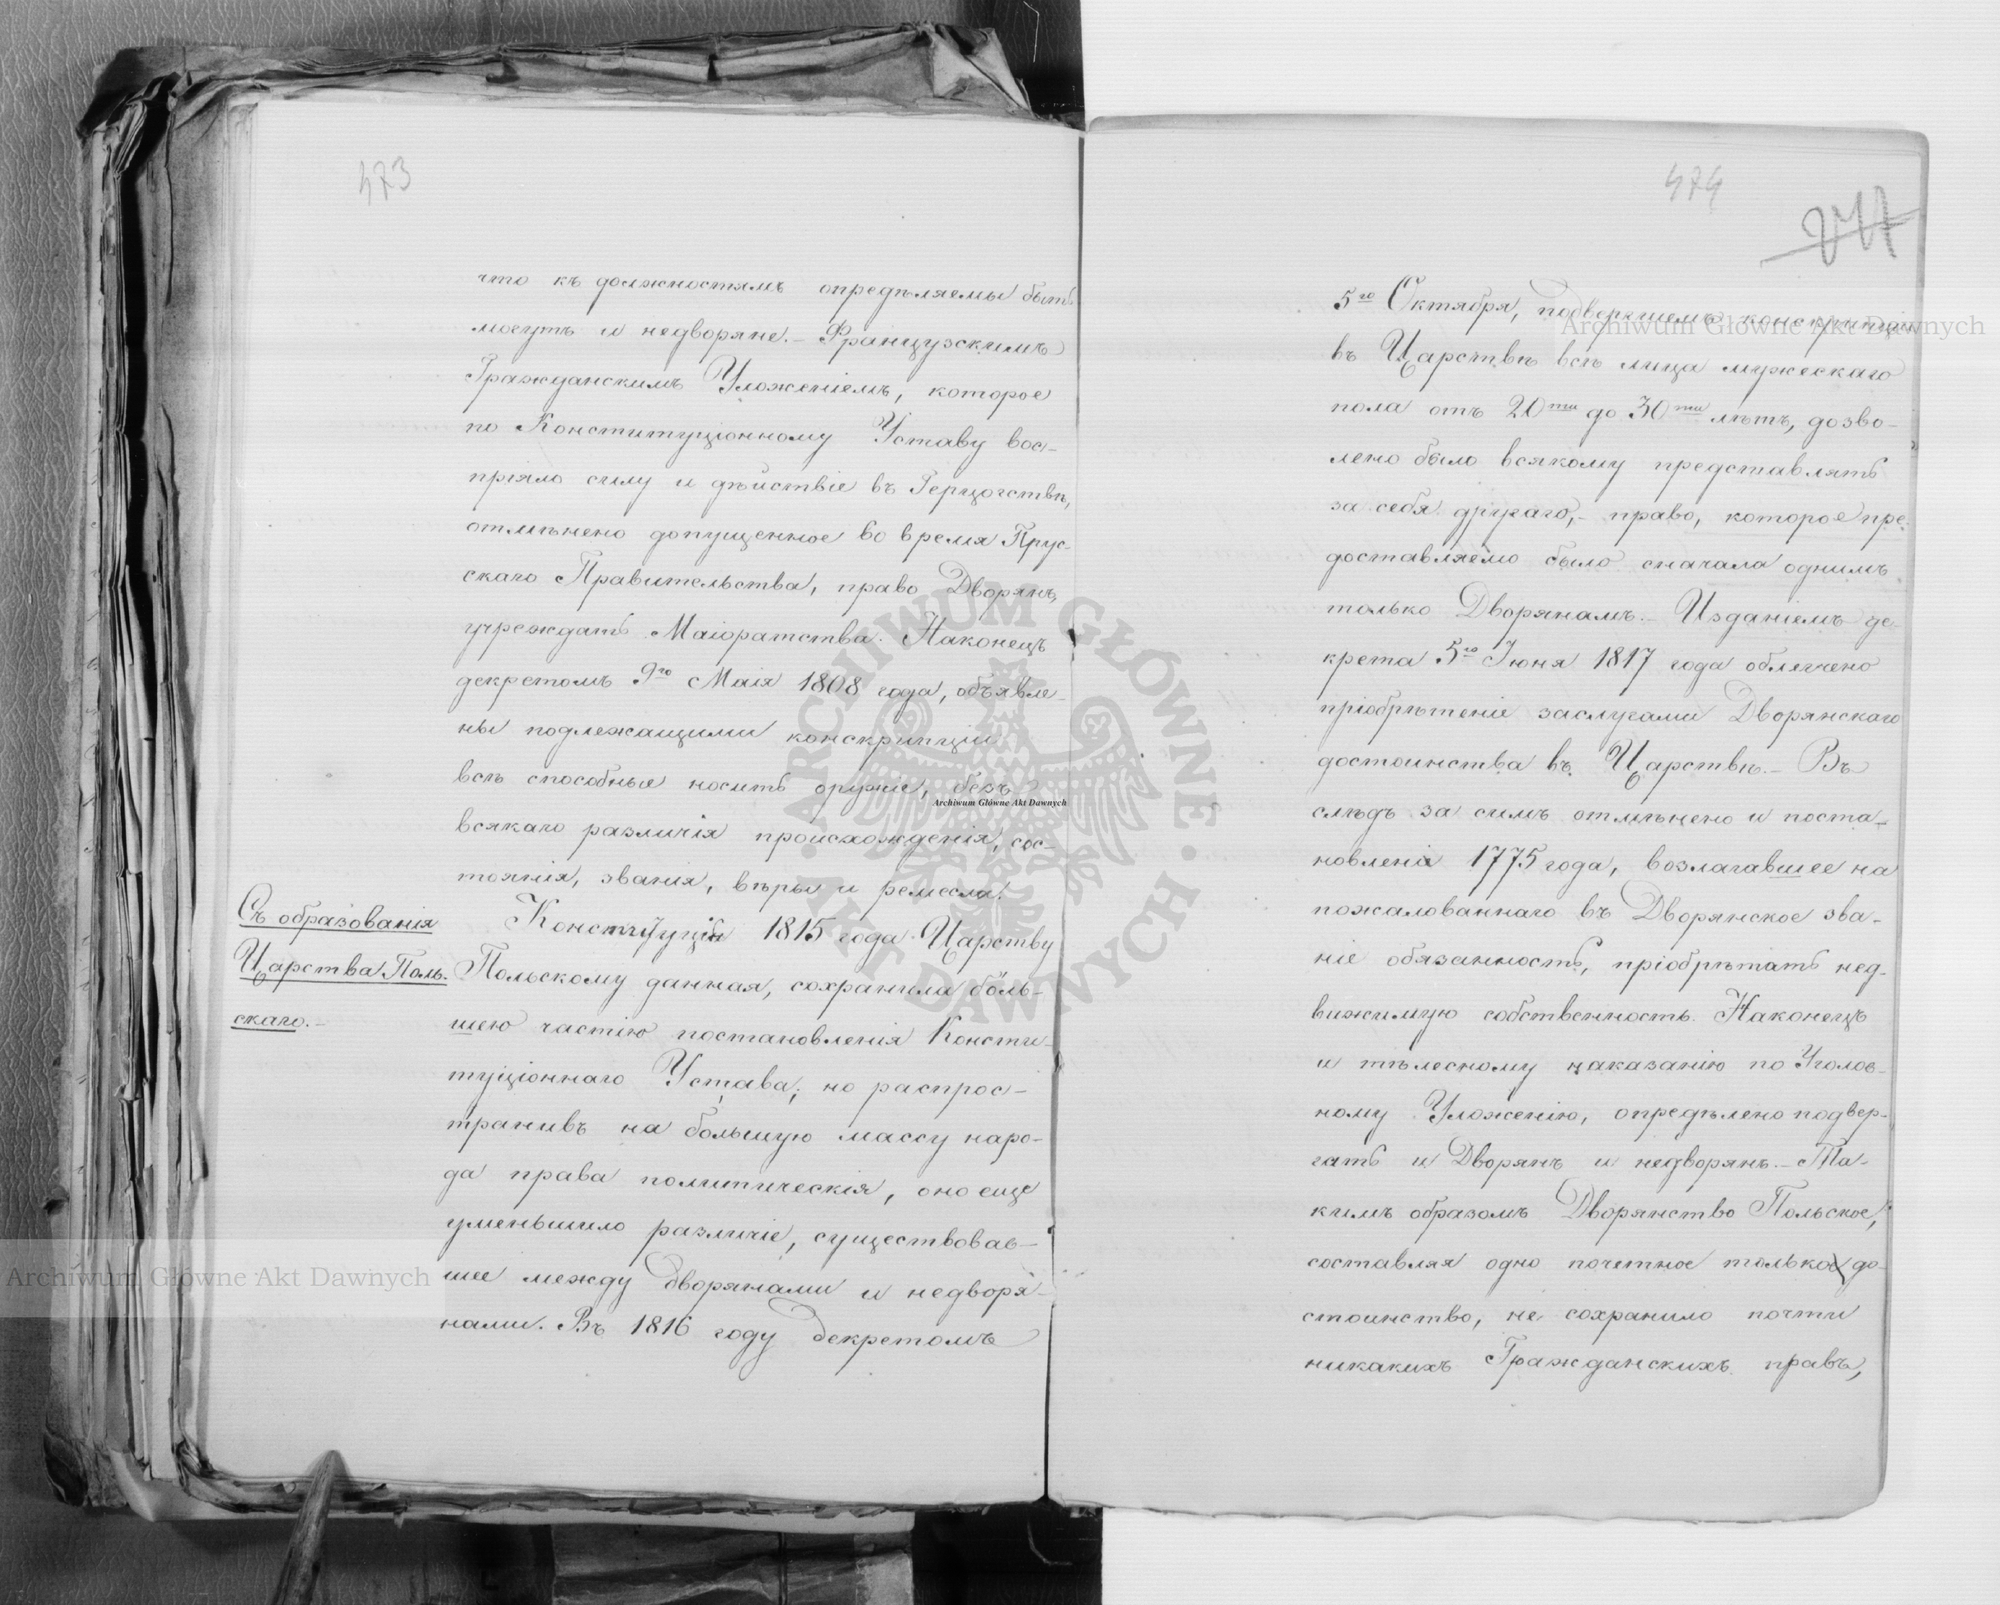 473
что къ должностямъ опредѣляемы быть
могутъ и недворяне. – Французскимъ
Гражданскимъ Уложеніемъ, которое
по Конституціонному Уставу вос-
пріяло силу и дѣйствіе въ Герцогствѣ,
отмѣнено допущенное во время Прус-
скаго Правительства, право Дворянъ
учреждать Маіоратства. Наконецъ
декретомъ 9го Маія 1808 года, объявле-
ны подлежащими конскрипціи
всѣ способные носить оружіе, безъ
всякаго различія происхожденія, сос-
тоянія, званія, вѣры и ремесла.
Съ образованія
Царства Поль-
скаго. –
Конституція 1815 года Царству
Польскому данная, сохранила боль-
шею частію постановленія Консти-
туціоннаго Устава; но распрос-
транивъ на большую массу наро-
да права политическія, оно еще
уменьшило различіе, существовав-
шее между дворянами и недворя-
нами. Въ 1816 году декретомъ
474
5го Октября, подвергшемъ конскрипціи
въ Царствѣ всѣ лица мужескаго
пола отъ 20ти до 30ти лѣтъ, дозво-
лено было всякому представлять
за себя другаго, – право, которое пре-
доставляемо было сначала однимъ
только Дворянамъ. – Изданіемъ де-
крета 5го Іюня 1817 года облегчено
пріобрѣтеніе заслугами Дворянскаго
достоинства въ Царствѣ. – Въ
слѣдъ за симъ отмѣнено и поста-
новленіе 1775 года, возлагавшее на
пожалованнаго въ Дворянское зва-
ніе обязанность, пріобрѣтать нед-
вижимую собственность. Наконецъ
и тѣлесному наказанію по Уголов-
ному Уложенію, опредѣлено подвер-
гать и Дворянъ и недворянъ. – Та-
кимъ образомъ Дворянство Польское,
составляя одно почетное только до-
стоинство, не сохранило почти
никакихъ Гражданскихъ правъ,
Archiwum Główne Akt Dawnych
Archiwum Główne Akt Dawnych
Archiwum Główne Akt Dawnych
ARCHIWUM GŁÓWNE AKT DAWNYCH